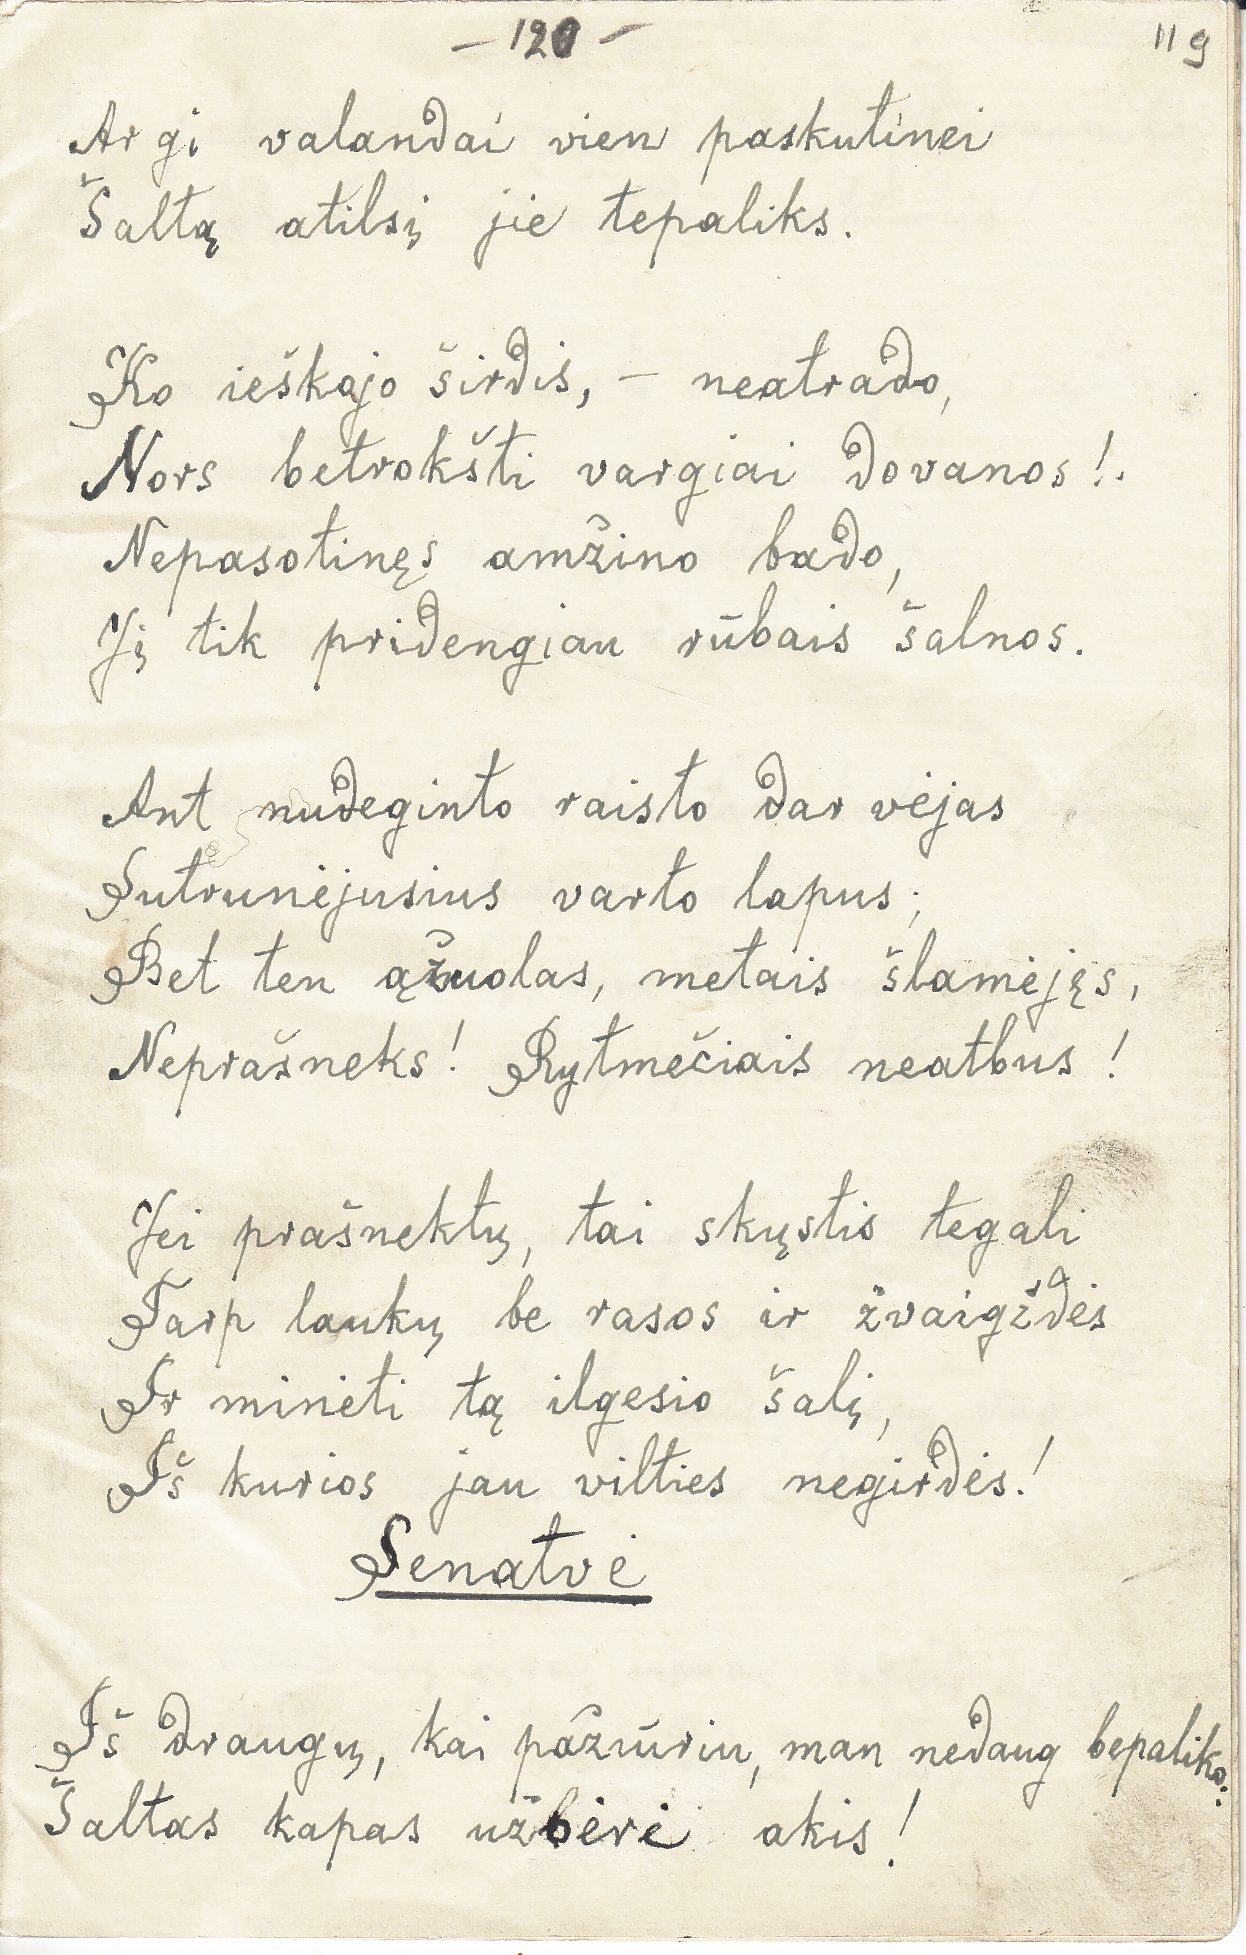 – 120 –
119
Ar gi valandai vien paskutinei
Šaltą atilsį jie tepaliks.
Ko ieškojo širdis, – neatrado,
Nors betrokšti vargiai dovanos!.
Nepasotinęs amžino bado,
Jį tik pridengiau rūbais šalnos.
Ant nudeginto raisto dar vėjas
Sutrunėjusius varto lapus;
Bet ten ąžuolas, metais šlamėjęs,
Neprašneks! Rytmečiais neatbus!
Jei prašnektų, tai skųstis tegali
Tarp laukų be rasos ir žvaigždės
Ir minėti tą ilgesio šalį,
Iš kurios jau vilties negirdės!
Senatvė
Iš draugų, kai pažiūriu, man nedaug bepaliko:
Šaltas kapas užbėrė akis!